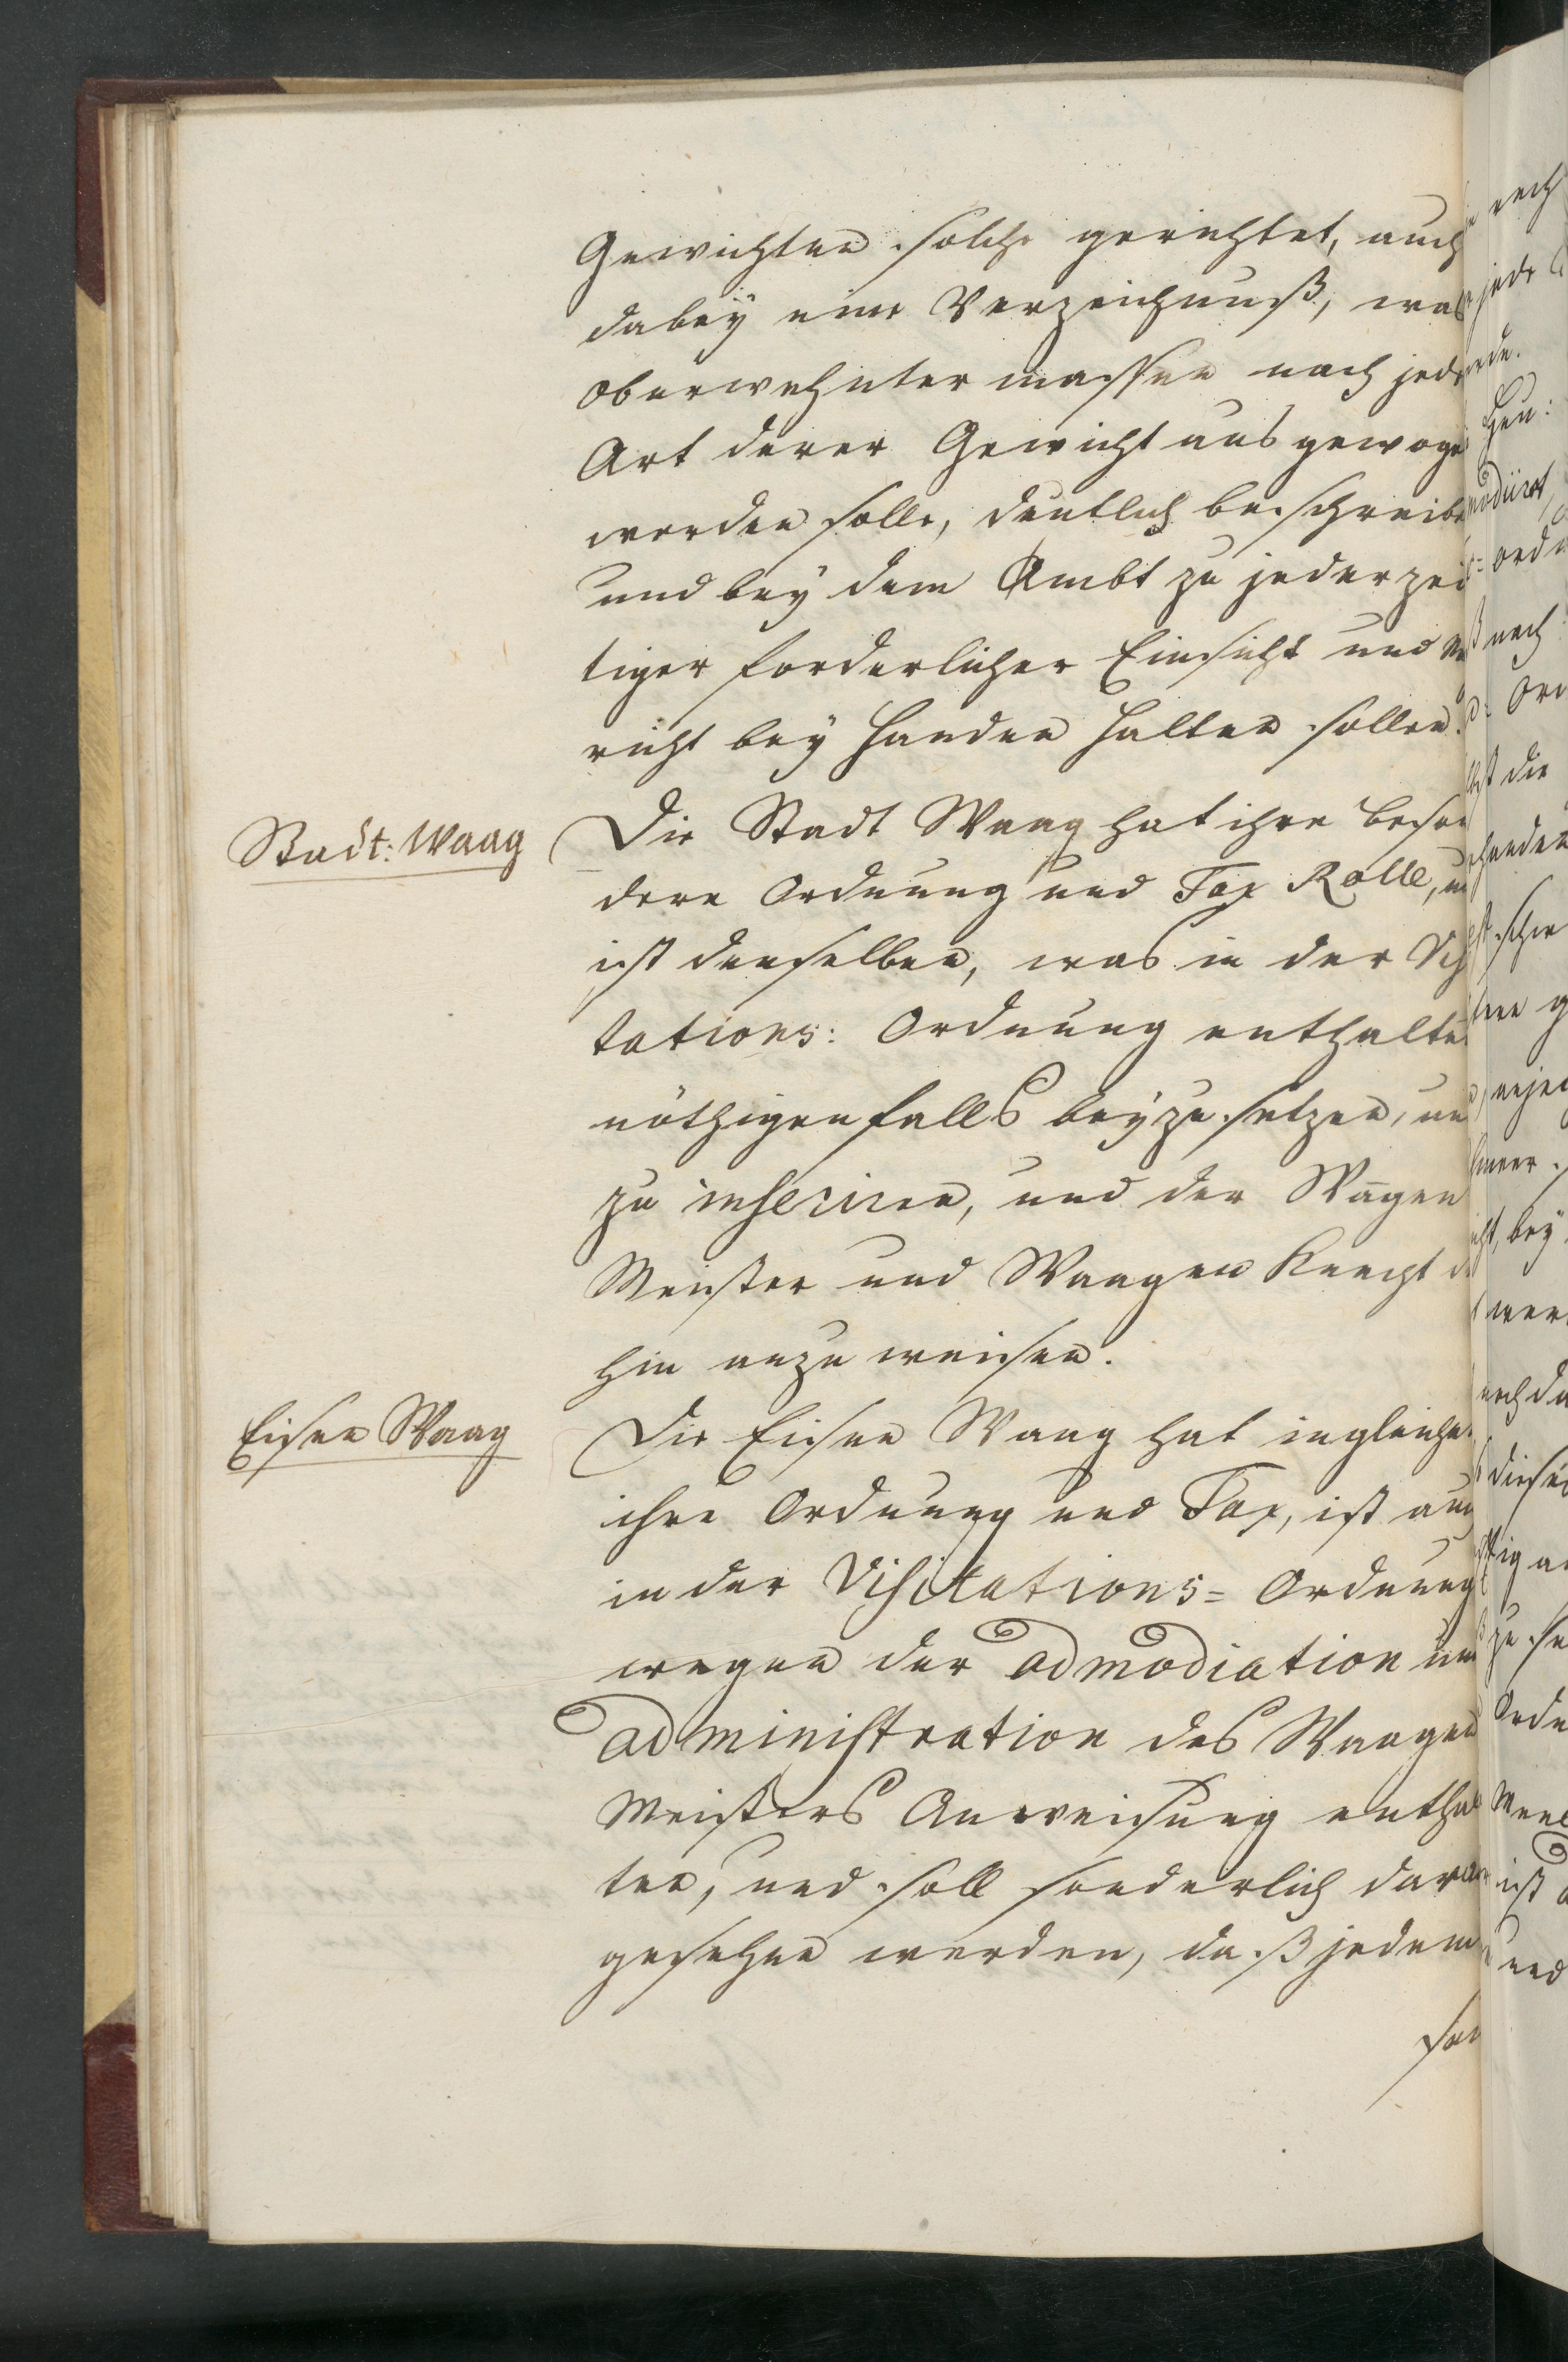 Gewichten solche gerichtet, auch
dabeÿ eine Verzeichnuß, was
oberwehnter massen nach jed
Art derer Gewicht ausgewoge
werden solle, deutlich beschreibe
und beÿ dem Ambt zu jederzei
tiger forderlicher Einsicht und
richt beÿ Handen halten sollen.
Stadt: Waag
Die Stadt Waag hat ihre beson
dere Ordnung und Tax Rolle, u
ist denselben, was in der Vi
tations: Ordnung enthalte
nöthigenfalls beÿzusetzen, un
zu inseriren, und der Wagen
Meister und Waagen Knecht d
hin anzuweisen.
Eisen Waag
Die Eisen Waag hat ingleiche
ihre Ordnung und Tax, ist auc
in der Visitations= Ordnung
wegen der admodiation un
administration des Waagen
Meisters Anweisung enthal
ten, und soll sonderlich dar
gesehen werden, daß jedem